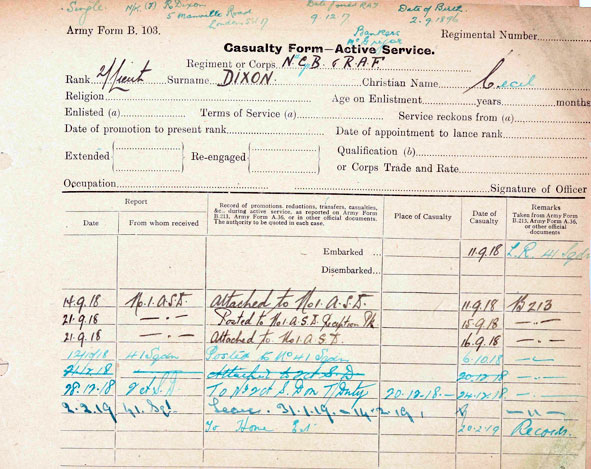 Single. N/K. (F) R. Dixon Date joined RAF Date of Birth
5 Manville Road 9.12.7 2.9.1896
London SW17
Army Form B. 103. Bankers Regimental Number
Casualty Form—Active Service.
Regiment or Corps R.A.F
Rank 2/Lieut Surname DIXON Christian Name Cecil
Religion Age on Enlistment years months
Enlisted (a) Terms of Service (a) Service reckons from (a)
Date of promotion to present rank Date of appointment to lance rank
Extended Re-engaged Qualification (b)
or Corps Trade and Rate
Occupation Signature of Officer
Report
Date From whom received
Record of promotions, reductions, transfers, casualties,
&c., during active service, as reported on Army Form
B.213, Army Form A.36, or in other official documents.
The authority to be quoted in each case.
Place of Casualty
Date of
Casualty
Remarks
Taken from Army Form
B.213, Army Form A.36,
or other official
documents
Embarked ... 11.9.18 41 Sqdn
Disembarked ...
14.9.18 No.1.A.S.D. Attached to No1.A.S.D. 11.9.18 B213
21.9.18 — . — Posted to No1.A.S.D. Reception Pk 15.9.18 — . —
21.9.18 — . — Attached to No1.A.S.D. 16.9.18 — . —
41 Sqdn Posted to No 41 Sqdn 6.10.18 — . —
Attached to 2 A.S.D 20.12.18 — . —
28.12.18 To No 2 A.S.D on T/Duty 20-12-18 — 24.12.18 — . —
2.2.19 41. Sqd. Leave 31.1.19. — 14.2.19. — 11 —
To Home Est 20.2.19 Records.